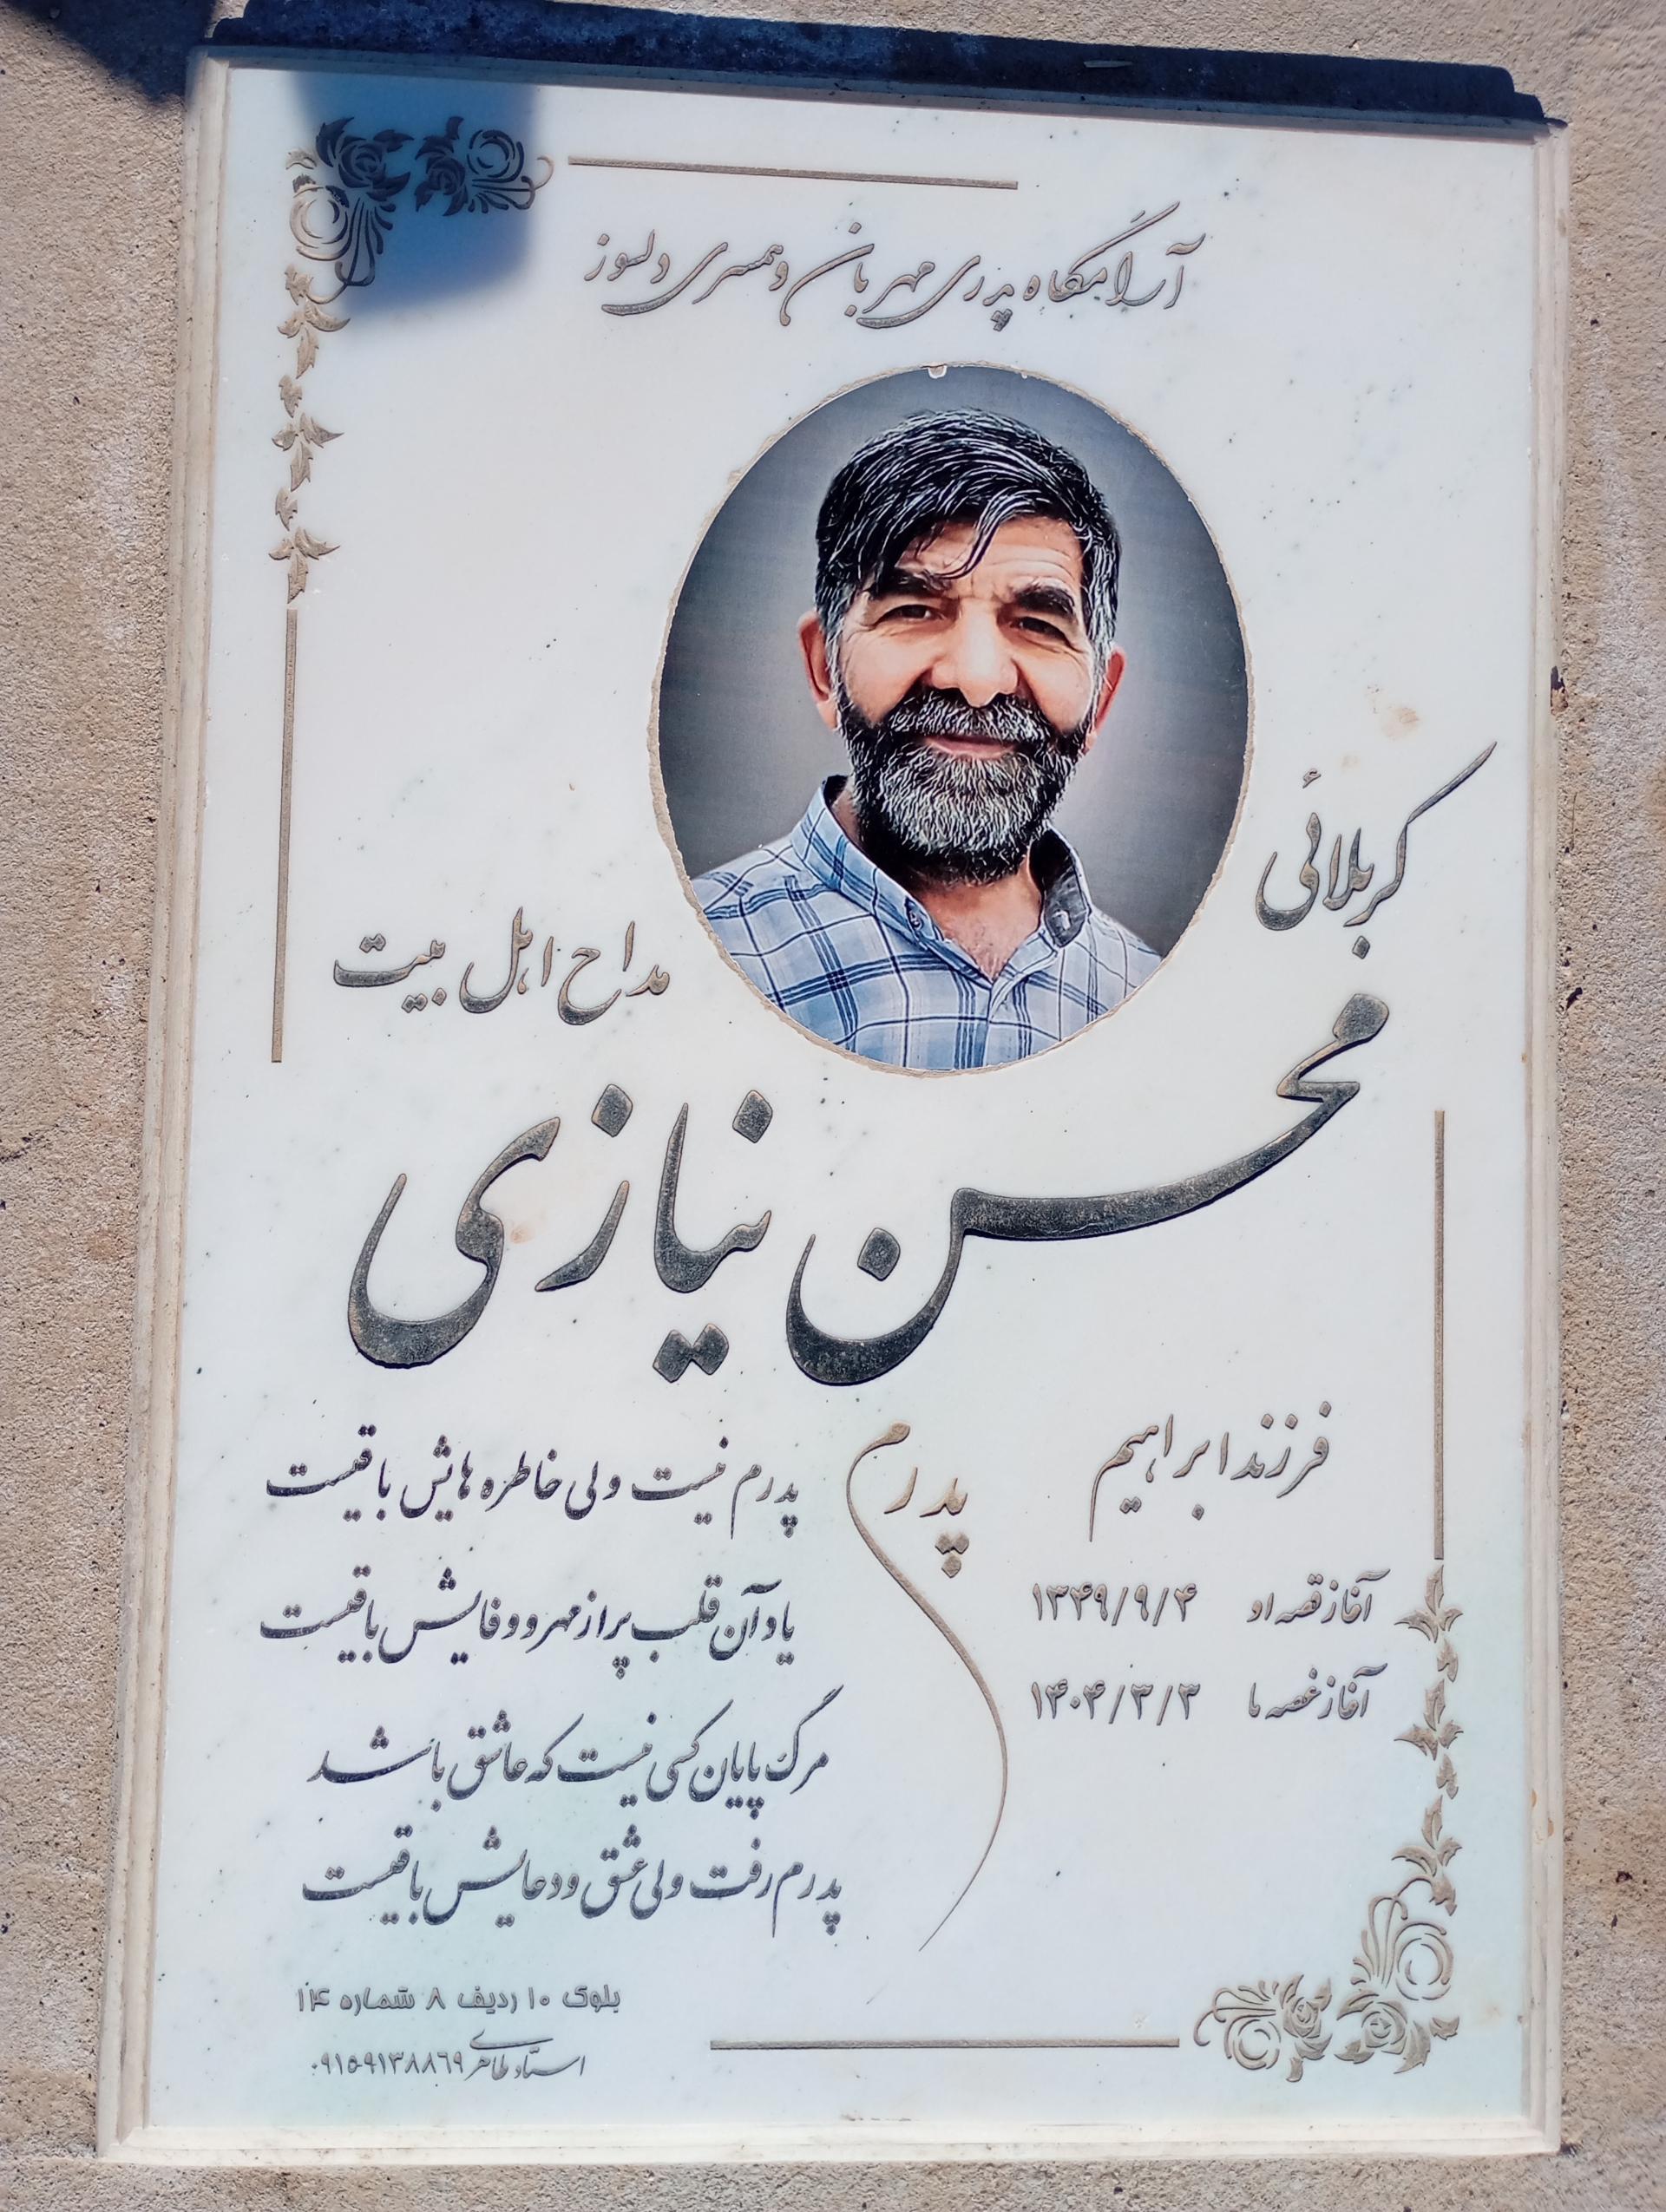 آرامگاه پدری مهربان و همسری دلسوز
کربلائی
مداح اهل بیت
محسن نیازی
فرزند ابراهیم
آغاز قصه او ۱۳۴۹/۹/۴
آغاز غصه ما ۱۴۰۴/۳/۳
پدرم
پدرم نیست ولی خاطره هایش باقیست
یاد آن قلب پر از مهر و وفایش باقیست
مرگ پایان کسی نیست که عاشق باشد
پدرم رفت ولی عشق و دعایش باقیست
بلوک ۱۰ ردیف ۸ شماره ۱۴
استاد طاهری ۰۹۱۵۹۱۳۸۸۶۹